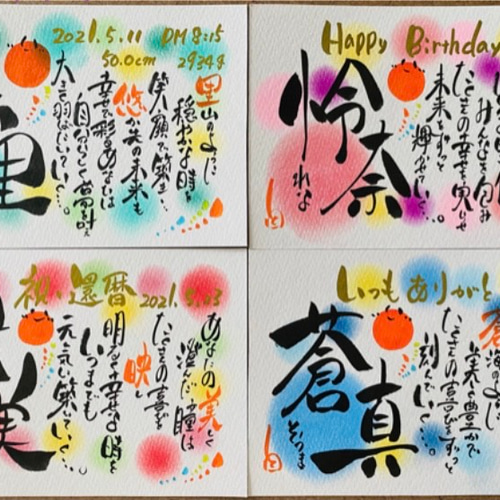 2021.5.11 PM 8:15
50.0cm 2934g
里山のように
穏やかな時を
笑顔で築き…
悠久の未来も
幸せで彩るあなたは
大きく羽ばたいていく…。
Happy Birthday
怜奈
れな
みんなを包み
たくさんの幸せを実らせ
未来をずっと
輝かせていく…。
祝い還暦 2021.9.03
あなたの美しく
澄んだ瞳は
たくさんの喜びを
映し
明るく幸せな時を
いつまでも
元気に築いていく…。
美
いつもありがと
蒼真
そうま
たくさんの喜びをずっと
刻んでいく…。